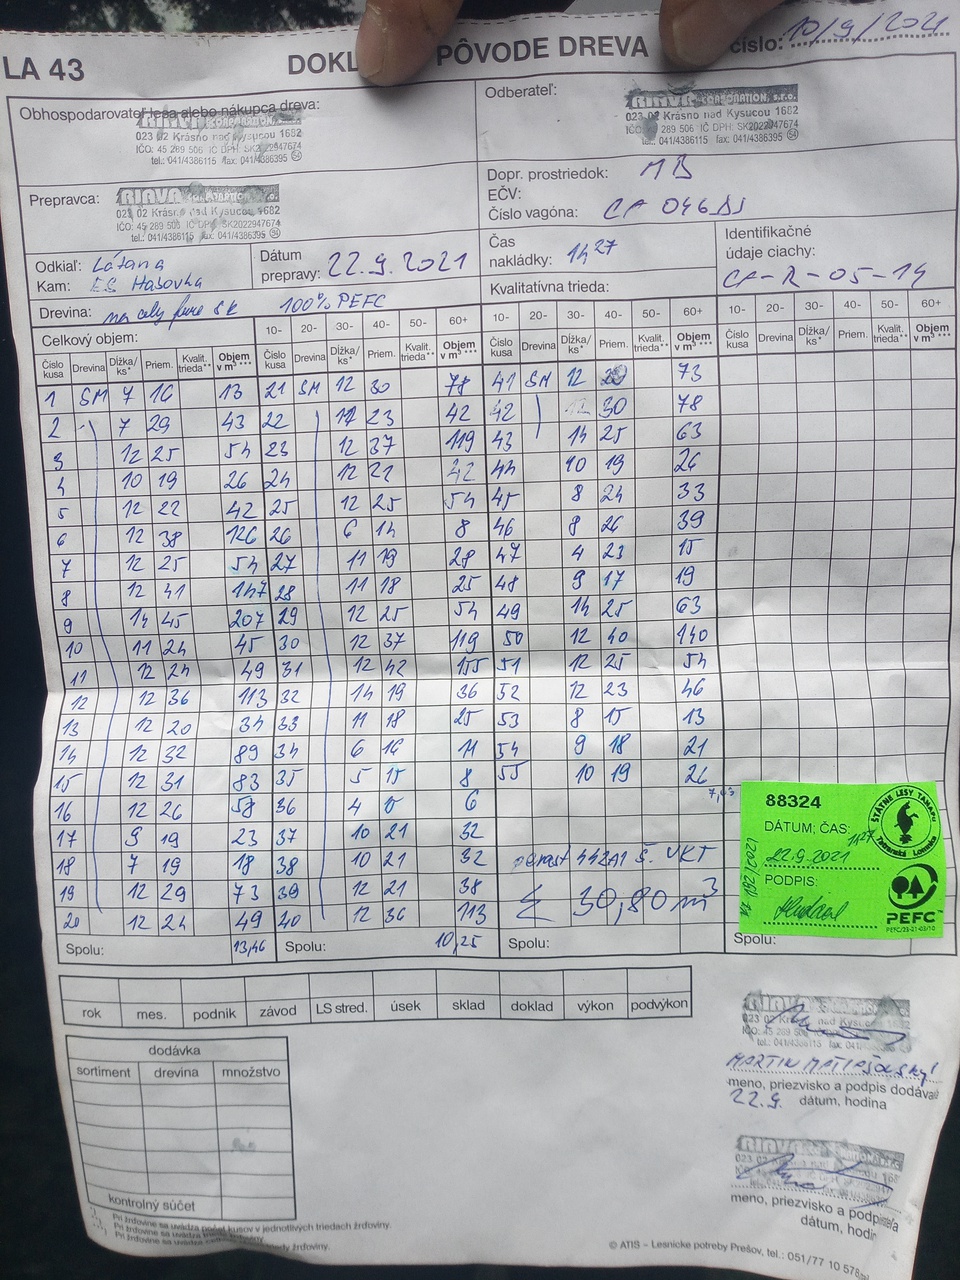 LA 43
DOKL PÔVODE DREVA
číslo: 10/9/2021
Obhospodarovateľ lesa alebo nákupca dreva:
RIAVA CORPORATION, s.r.o.
023 02 Krásno nad Kysucou 1682
IČO: 45 289 506 IČ DPH: SK2022947674
tel.: 041/4386115 fax: 041/4386395
Odberateľ:
RIAVA CORPORATION, s.r.o.
023 02 Krásno nad Kysucou 1682
IČO: 45 289 506 IČ DPH: SK2022947674
tel.: 041/4386115 fax: 041/4386395
Prepravca:
RIAVA CORPORATION, s.r.o.
023 02 Krásno nad Kysucou 1682
IČO: 45 289 506 IČ DPH: SK2022947674
tel.: 041/4386115 fax: 041/4386395
Dopr. prostriedok: MB
EČV:
Číslo vagóna: CA 046
Odkiaľ: Látaná
Kam: ES Habovka
Dátum prepravy: 22.9.2021
Čas nakládky: 14 27
Identifikačné údaje ciachy:
CA-R-05-14
Drevina: na celý SK 100% PEFC
Kvalitatívna trieda:
Celkový objem: 10- 20- 30- 40- 50- 60+ 10- 20- 30- 40- 50- 60+ 10- 20- 30- 40- 50- 60+
Číslo kusa Drevina Dĺžka/ ks* Priem. Kvalit. trieda** Objem v m³ *** Číslo kusa Drevina Dĺžka/ ks* Priem. Kvalit. trieda** Objem v m³ *** Číslo kusa Drevina Dĺžka/ ks* Priem. Kvalit. trieda** Objem v m³ *** Číslo kusa Drevina Dĺžka/ ks* Priem. Kvalit. trieda** Objem v m³ ***
1 SM 7 16 13 21 SM 12 30 78 41 SM 12 29 73
2 7 29 43 22 12 23 42 42 12 30 78
3 12 25 54 23 12 37 119 43 14 25 63
4 10 19 26 24 12 22 42 44 10 19 26
5 12 22 42 25 12 25 54 45 8 24 33
6 12 38 126 26 6 14 8 46 8 26 39
7 12 25 54 27 11 19 28 47 4 23 15
8 12 41 147 28 11 18 25 48 9 17 19
9 14 45 207 29 12 25 54 49 14 25 63
10 11 24 45 30 12 37 119 50 12 40 140
11 12 24 49 31 12 42 155 51 12 25 54
12 12 36 113 32 14 19 36 52 12 23 46
13 12 20 34 33 11 18 25 53 8 15 13
14 12 32 89 34 6 16 11 54 9 18 21
15 12 31 83 35 5 15 8 55 10 19 26
16 12 26 58 36 4 6
17 9 19 23 37 10 21 32
18 7 19 18 38 10 21 32
19 12 29 73 39 12 21 38
20 12 24 49 40 12 36 113
porast 442A1 Š. VKT
Σ 30,80 m³
Spolu: 13,46 Spolu: 10,25 Spolu: Spolu:
88324
DÁTUM; ČAS: 14 27
22.9.2021
PODPIS:
ŠTÁTNE LESY TANAPU
Tatranská Lomnica
PEFC
PEFC/23-21-03/10
rok mes. podnik závod LS stred. úsek sklad doklad výkon podvýkon
dodávka
sortiment drevina množstvo
kontrolný súčet
RIAVA
023 02 Krásno nad Kysucou
MARTIN
meno, priezvisko a podpis dodáva
22.9. dátum, hodina
RIAVA
meno, priezvisko a podpis
dátum, hodin
Pri žrďovine sa uvádza počet kusov v jednotlivých triedach žrďoviny.
© ATIS – Lesnícke potreby Prešov, tel.: 051/77 10 578